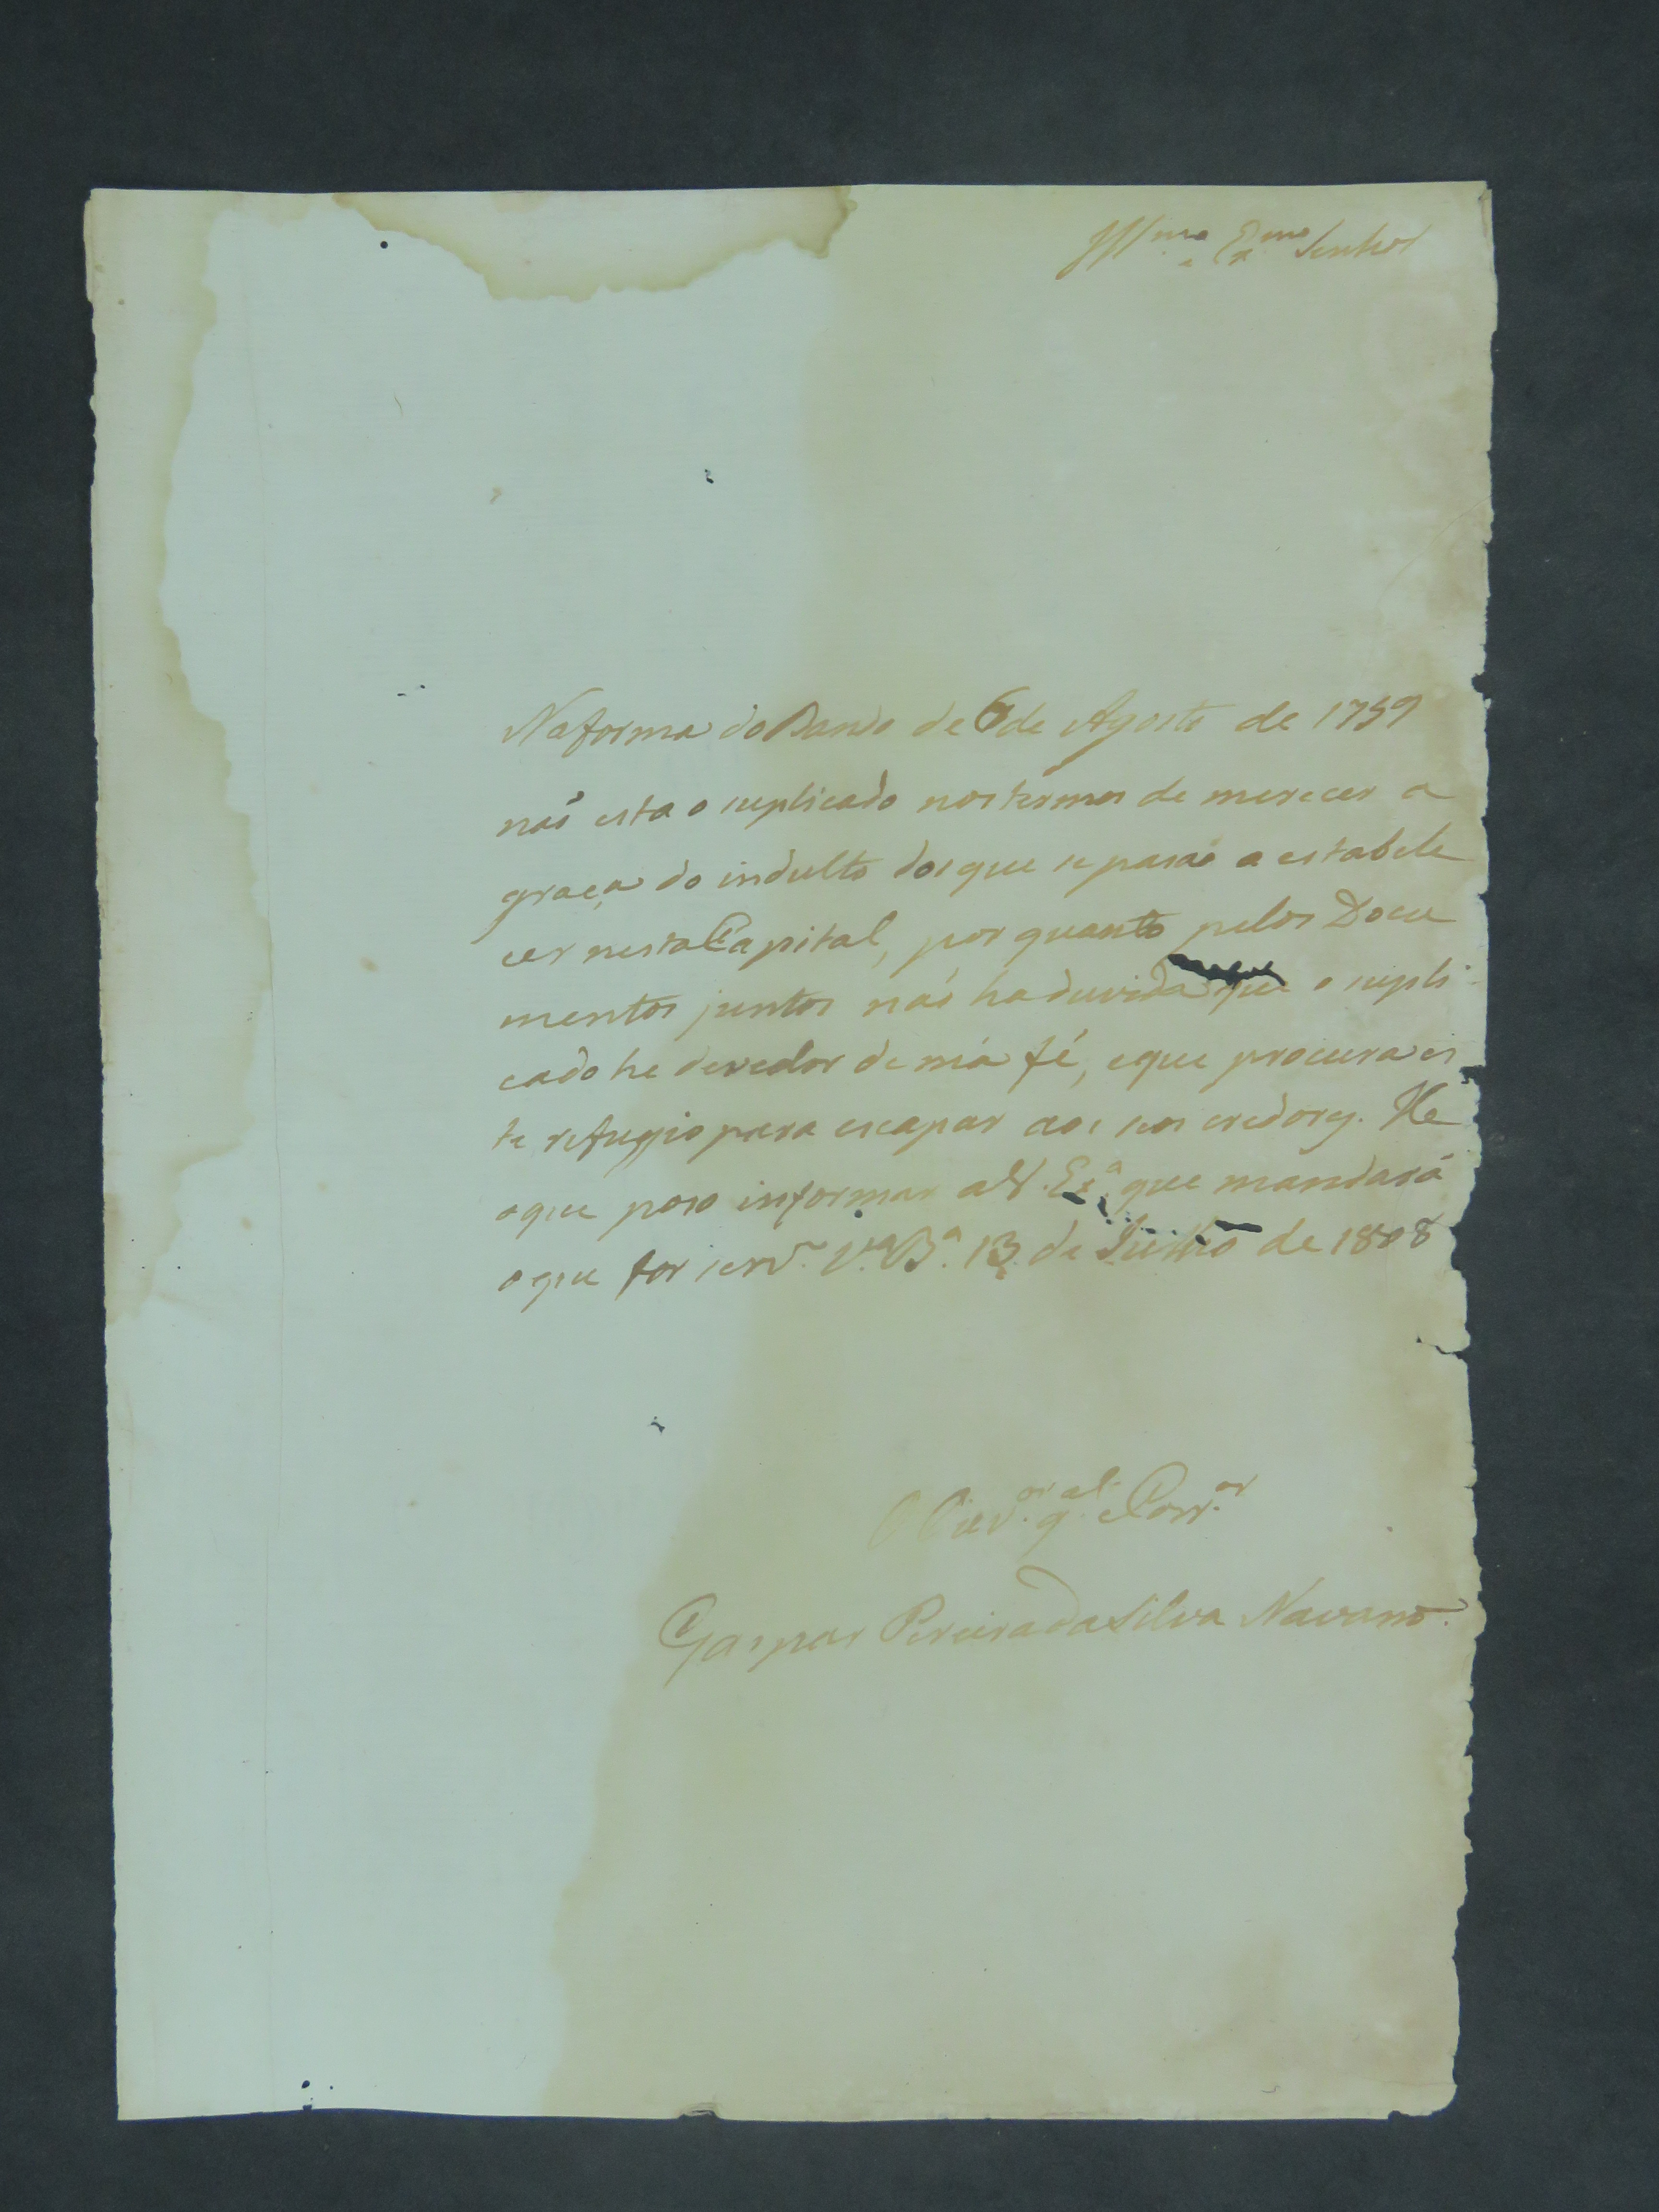 Ill.mo e Ex.mo Senhor
Na forma do Bando de 6 de Agosto de 1759
naõ esta o suplicado nos termos de merecer a
graça do indulto dos que se pasaõ a estabele
cer nesta Capital, por quanto pelos Docu
mentos juntos naõ ha duvida que o supli-
cado he devedor de má fé, e que procura es
te refugio para escapar aos seos credores. He
o que poso informar a V. Ex.a que mandará
o que for serv.o V.a B.a 13 de Julho de 1808
O Ouv.or g.al e Corr.or
Gaspar Pereira da Silva Navarro.